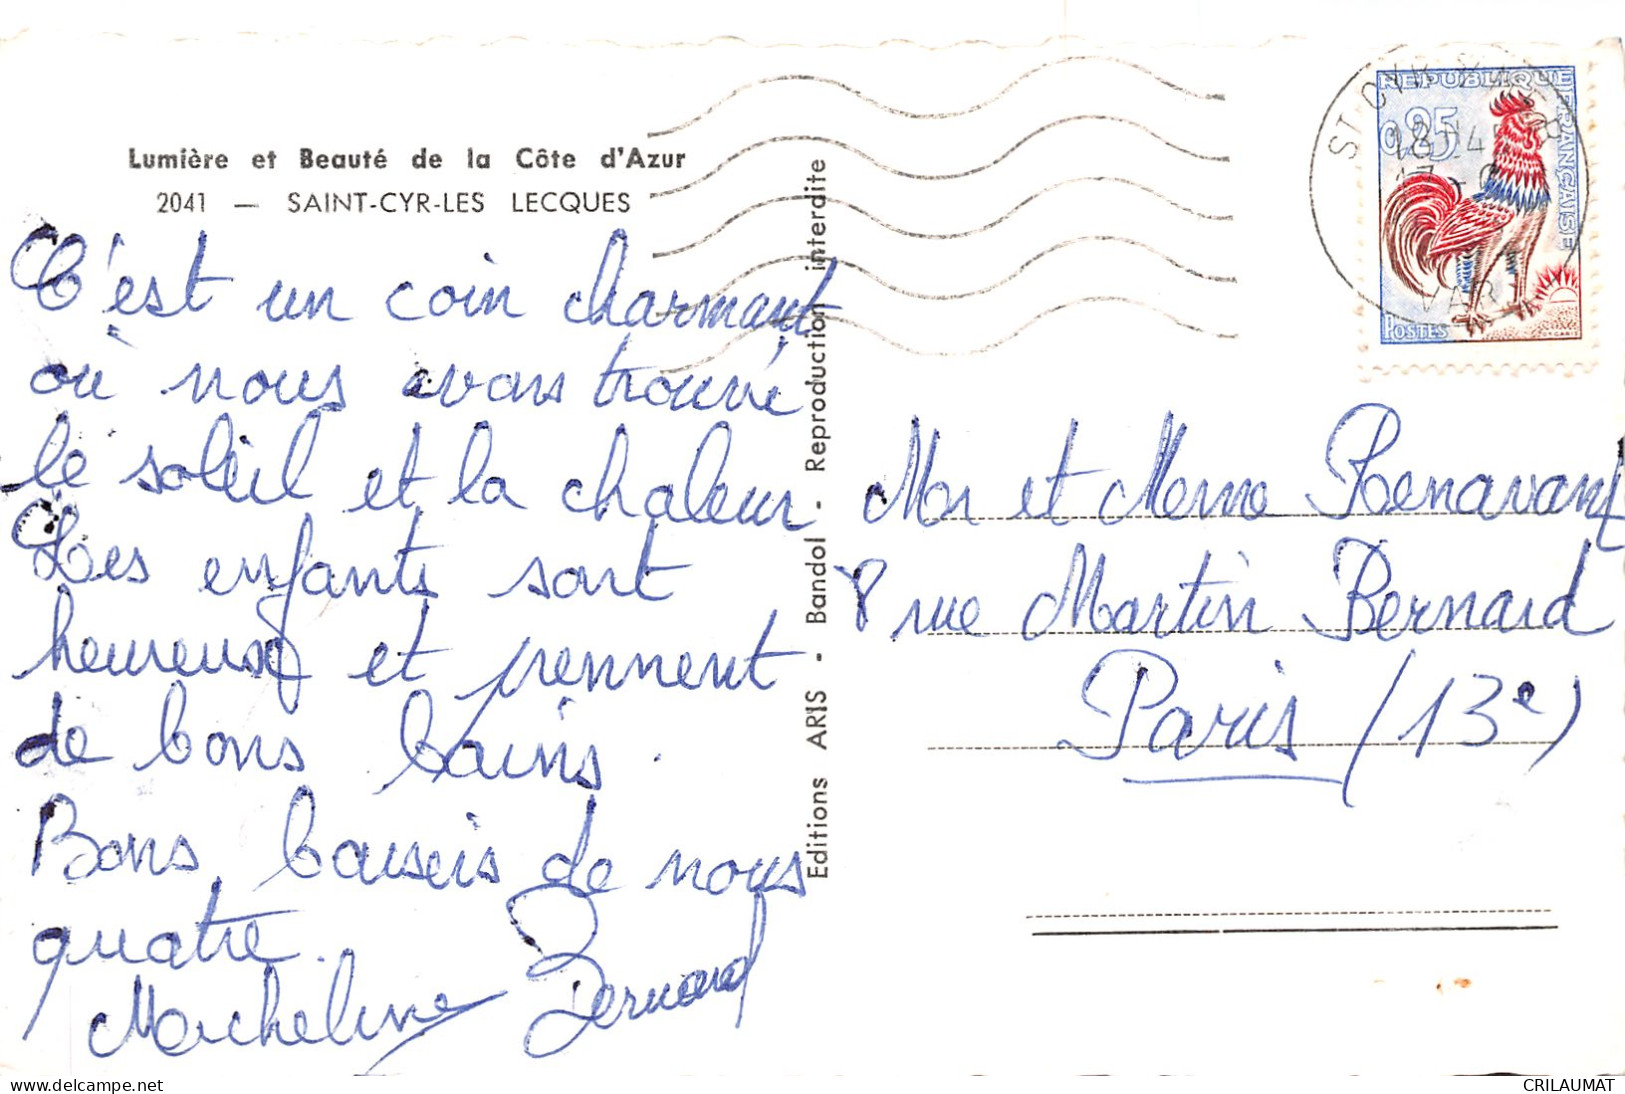 Lumière et Beauté de la Côte d'Azur
2041 — SAINT-CYR-LES LECQUES
C'est un coin charmant
où nous avons trouvé
le soleil et la chaleur.
Les enfants sont
heureux et prennent
de bons bains.
Bons baisers de nous
quatre.
Micheline Bernard
Editions ARIS - Bandol - Reproduction interdite
REPUBLIQUE
FRANÇAISE
0,25
POSTES
ST CYR
VAR
Mr et Meme Renavant
8 rue Martin Bernard
Paris (13e)
delcampe.net
CRILAUMAT